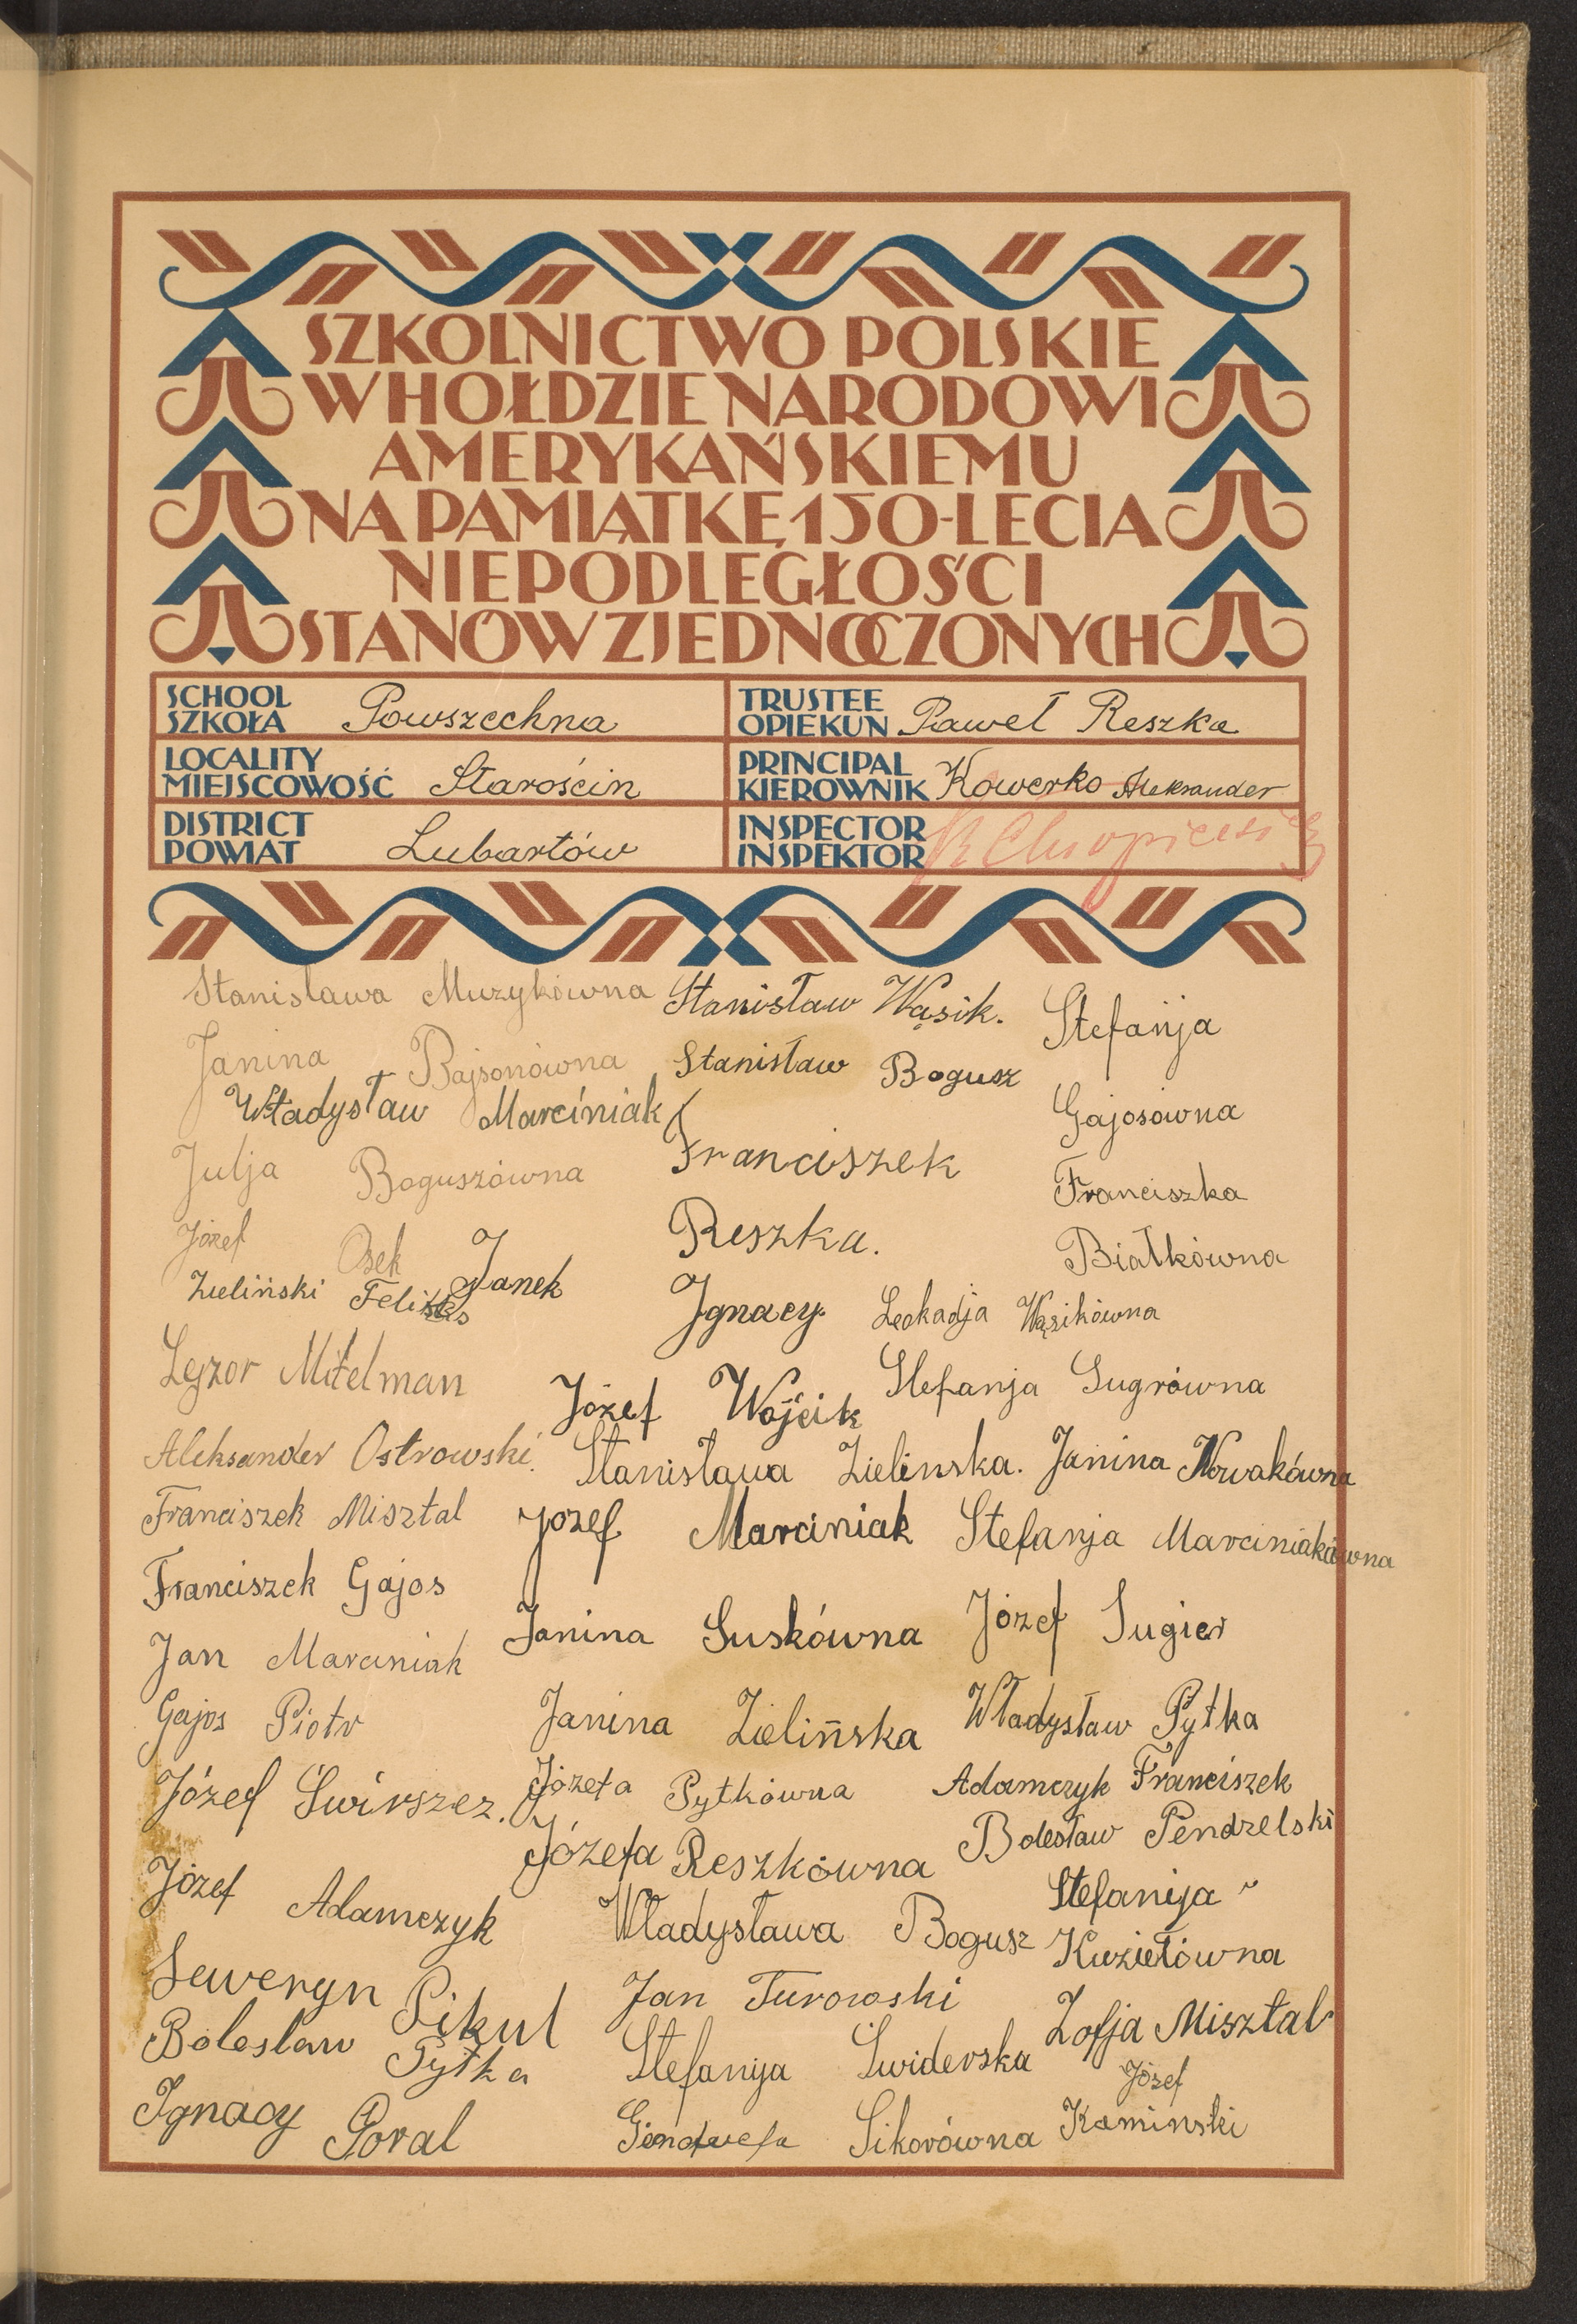 SZKOLNICTWO POLSKIE
W HOŁDZIE NARODOWI
AMERYKAŃSKIEMU
NA PAMIĄTKĘ 150-LECIA
NIEPODLEGŁOŚCI
STANÓW ZJEDNOCZONYCH
SCHOOL
SZKOŁA Powszechna
TRUSTEE
OPIEKUN Paweł Reszka
LOCALITY
MIEJSCOWOŚĆ Starościn
PRINCIPAL
KIEROWNIK Kowerko Aleksander
DISTRICT
POWIAT Lubartów
INSPECTOR
INSPEKTOR
Stanisława Muzykówna
Janina Bajsonówna
Władysław Marciniak
Julja Boguszówna
Józef Osek Janek
Zieliński Feliks
Lejzor Mitelman
Aleksander Ostrowski.
Franciszek Misztal
Franciszek Gajos
Jan Marciniak
Gajos Piotr
Józef Świrszcz.
Józef Adamczyk
Seweryn Pikul
Bolesław Pytka
Ignacy Goral
Stanisław Wąsik.
Stanisław Bogusz
Franciszek
Reszka.
Ignacy
Józef Wójcik
Stanisława Zielinska.
Jozef Marciniak
Janina Suskówna
Janina Zielińska
Józefa Pytkówna
Józefa Reszkówna
Władysława Bogusz
Jan Turowski
Stefanija Świderska
Sikorówna
Stefanja
Gajosówna
Franciszka
Białkówna
Leokadja Wąsikówna
Stefanja Sugrówna
Janina Nowakówna
Stefanja Marciniakówna
Józef Sugier
Władysław Pytka
Adamczyk Franciszek
Bolesław Pendzelski
Stefanija
Kuziełówna
Zofja Misztal
Józef
Kaminski